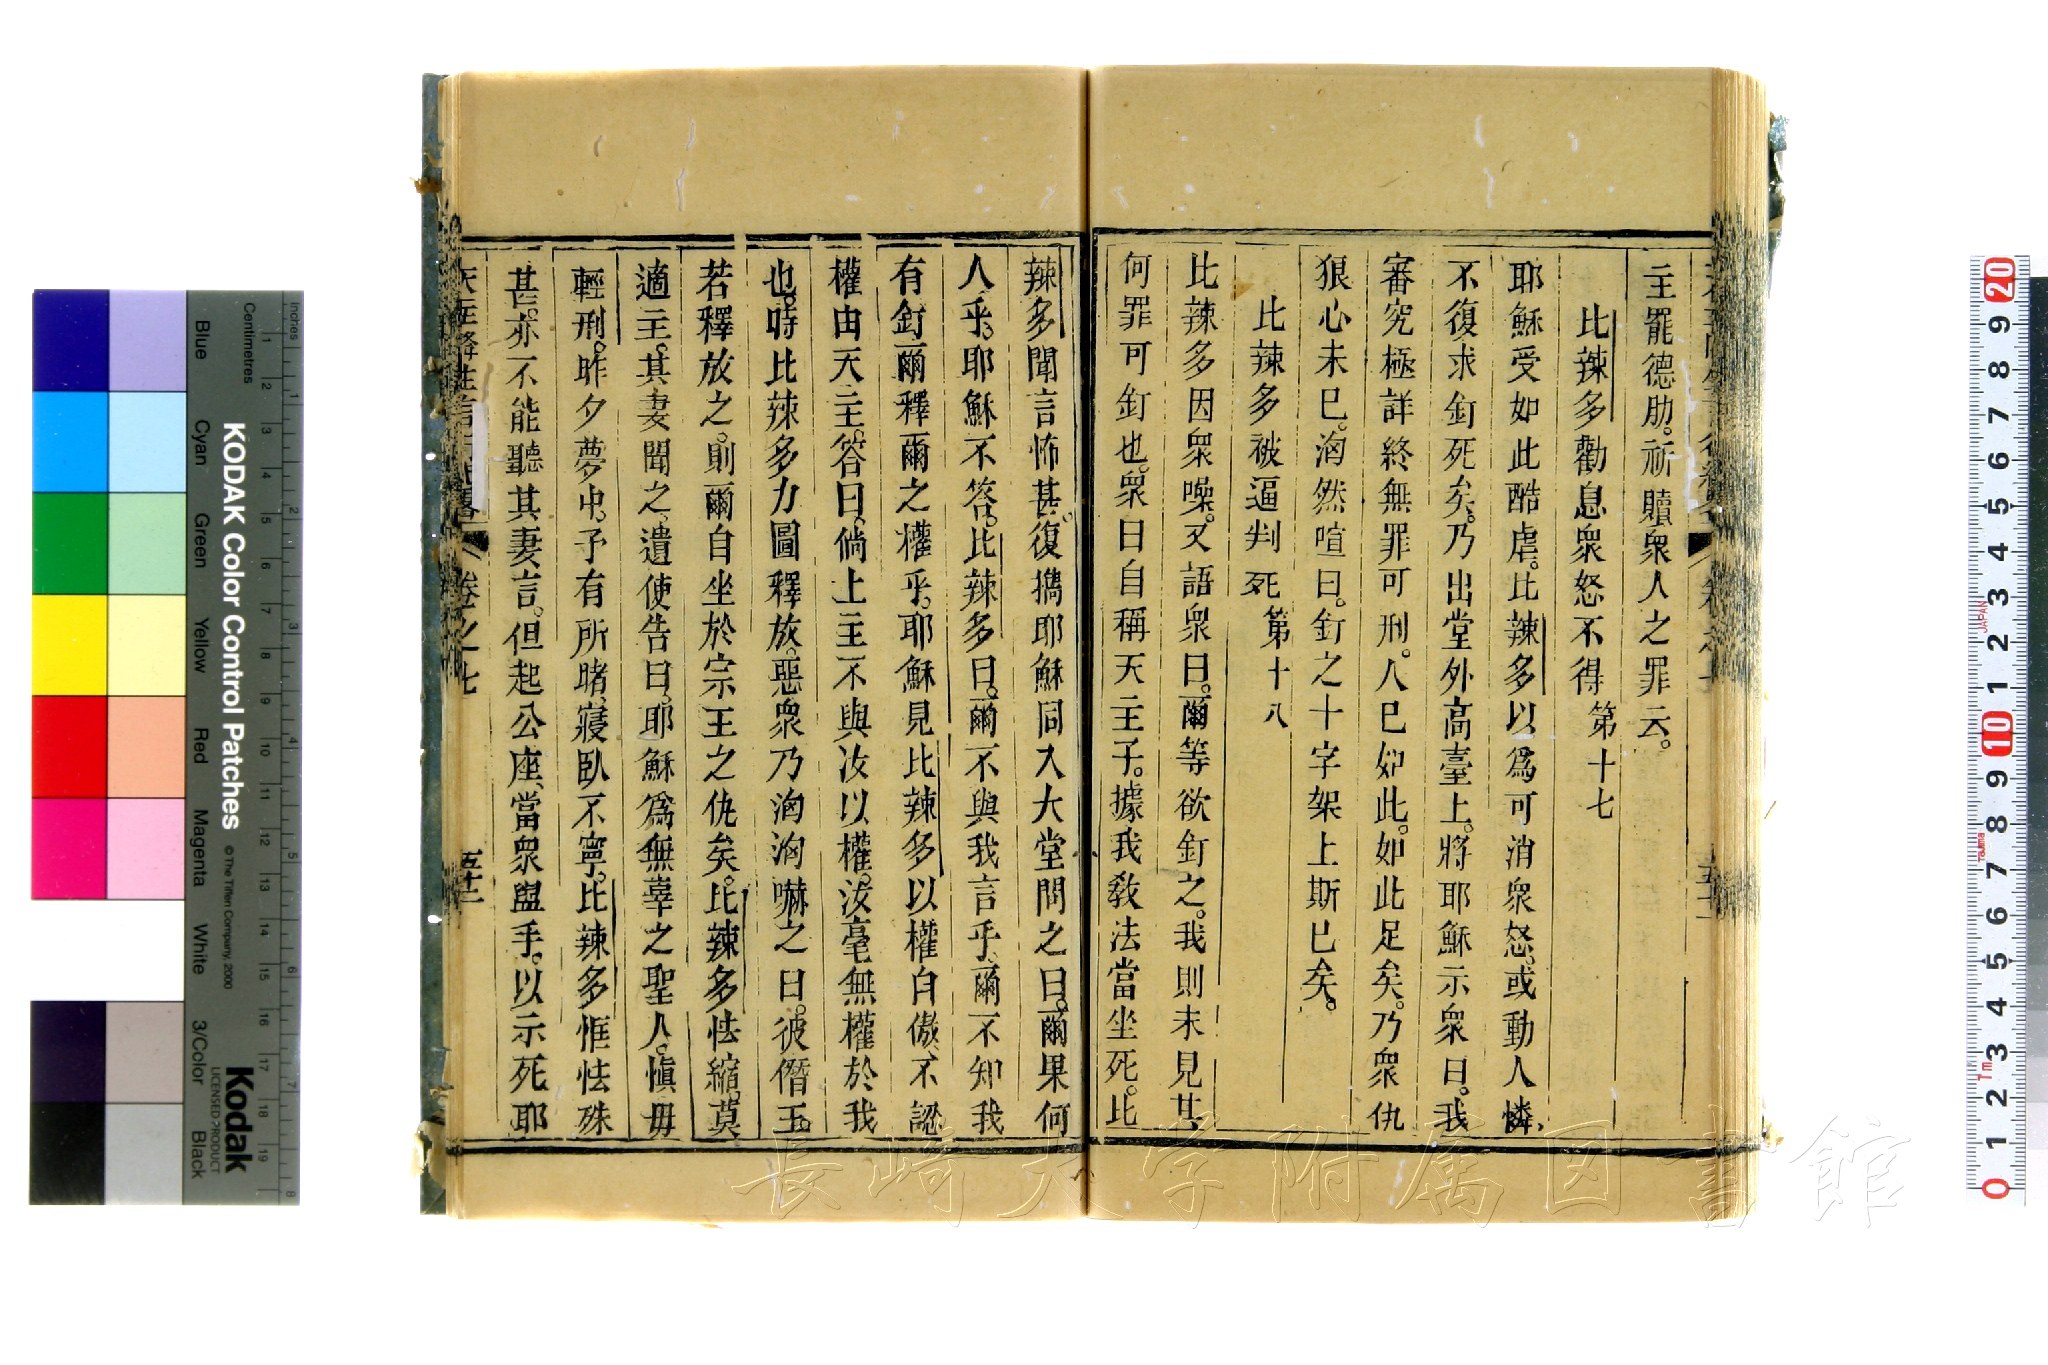 主罷德肋。祈贖衆人之罪云。
比辣多勸息衆怒不得 第十七
耶穌受如此酷虐。比辣多以爲可消衆怒。或動人憐。
不復求釘死矣。乃出堂外高臺上。將耶穌示衆曰。我
審究極詳終無罪可刑。人已如此。如此足矣。乃衆仇
狠心未已。洶然喧曰。釘之十字架上斯已矣。
比辣多被逼判死 第十八
比辣多因衆噪。又語衆曰。爾等欲釘之。我則未見其
何罪可釘也。衆曰自稱天主子。據我教法當坐死。比
辣多聞言怖甚。復携耶穌同入大堂問之曰。爾果何
人乎。耶穌不答。比辣多曰。爾不與我言乎。爾不知我
有釘爾釋爾之權乎。耶穌見比辣多以權自傲、不認
權由天主。答曰。倘上主不與汝以權。汝毫無權於我
也。時比辣多力圖釋放。惡衆乃洶洶嚇之曰。彼僭王
若釋放之。則爾自坐於宗王之仇矣。比辣多怯縮。莫
適主。其妻聞之、遣使告曰。耶穌爲無辜之聖人。愼毋
輕刑。昨夕夢中。予有所睹、寢臥不寧。比辣多恇怯殊
甚。亦不能聽其妻言。但起公座、當衆盥手。以示死耶
天主降生言行紀畧 卷之七 五十二
KODAK Color Control Patches
© The Tiffen Company, 2000
Kodak
LICENSED PRODUCT
Inches
Centimetres
Blue
Cyan
Green
Yellow
Red
Magenta
White
3/Color
Black
JAPAN
Tajima
長崎大学附属図書館